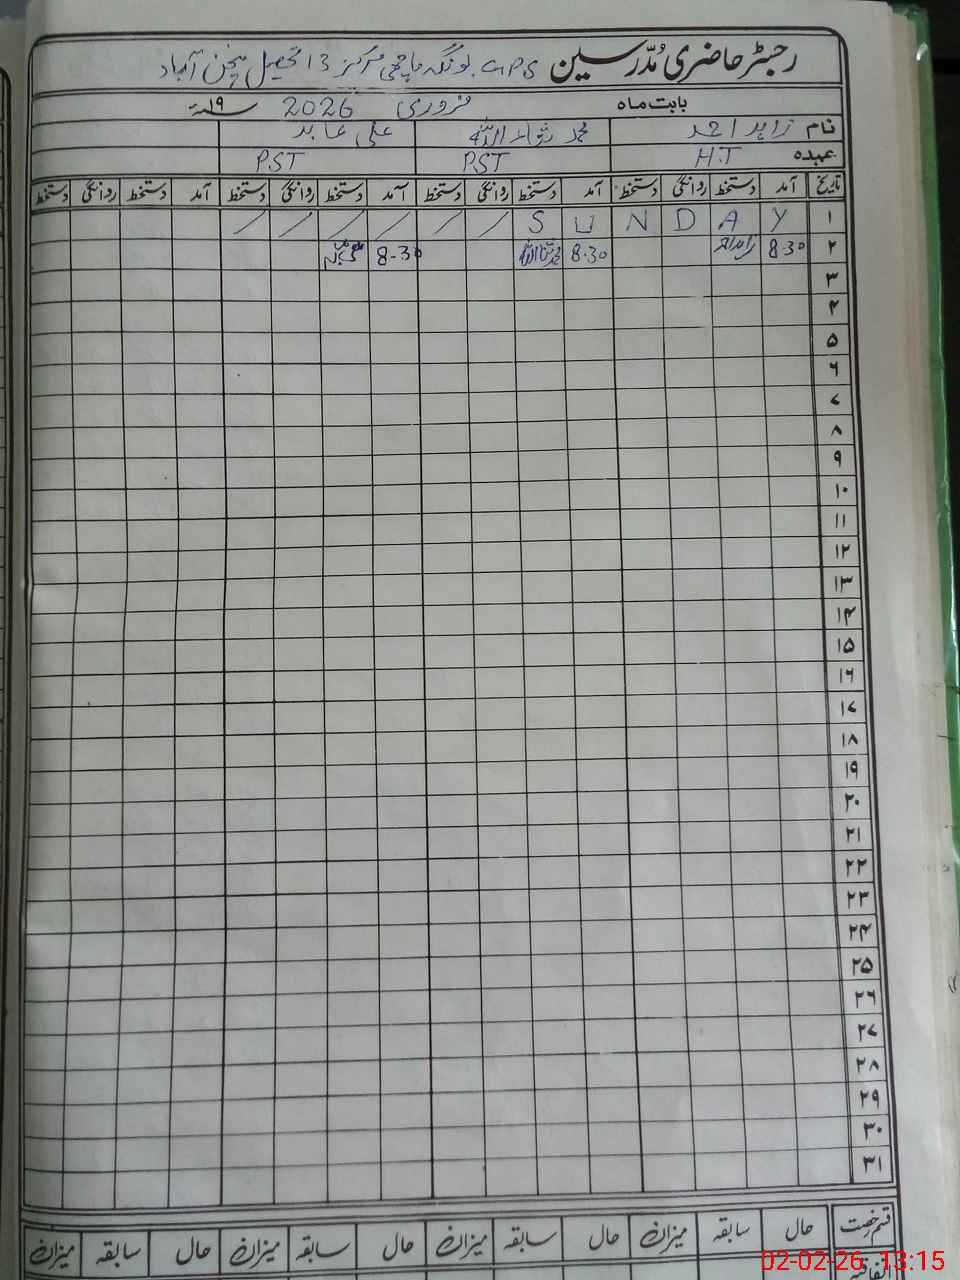 رجسٹر حاضری مدرسین GPS. لونگہ ماچھی مرکز 13 تحصیل منچن آباد
بابت ماہ فروری 2026 ۱۹ء
نام زاہد احمد محمد ثناء اللہ علی عابد
عہدہ H.T PST PST
تاریخ آمد دستخط روانگی دستخط آمد دستخط روانگی دستخط آمد دستخط روانگی دستخط آمد دستخط روانگی دستخط
۱ Y A D N U S / / / / / /
۲ 8-30 زاہد احمد 8.30 محمد ثناء اللہ 8-30
۳
۴
۵
۶
۷
۸
۹
۱۰
۱۱
۱۲
۱۳
۱۴
۱۵
۱۶
۱۷
۱۸
۱۹
۲۰
۲۱
۲۲
۲۳
۲۴
۲۵
۲۶
۲۷
۲۸
۲۹
۳۰
۳۱
قسم رخصت حال سابقہ میزان حال سابقہ میزان حال سابقہ میزان حال سابقہ میزان
اتفاقیہ
02-02-26 13:15